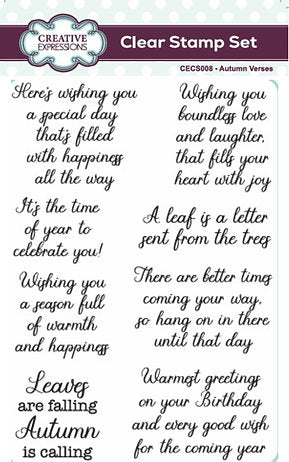 CREATIVE
EXPRESSIONS
Clear Stamp Set
CECS008 - Autumn Verses
Here's wishing you
a special day
that's filled
with happiness
all the way
Wishing you
boundless love
and laughter,
that fills your
heart with joy
It's the time
of year to
celebrate you!
A leaf is a letter
sent from the trees
Wishing you
a season full
of warmth
and happiness
There are better times
coming your way,
so hang on in there
until that day
Leaves
are falling
Autumn
is calling
Warmest greetings
on your Birthday
and every good wish
for the coming year